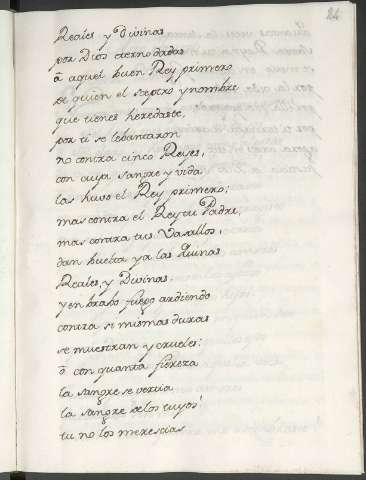 24
Reales y Divinas
por Dios eterno dadas
â aquel buen Rey primero
de quien el sceptro y nombre
que tienes heredaste,
por ti se lebantaron
no contra cinco Reyes,
con cuya sangre y vida
las huvo el Rey primero;
mas contra el Rey tu Padre,
mas contra tus Vasallos,
dan buelta ya las Quinas
Reales, y Divinas,
y en brabo fuego ardiendo
contra si mismas duras
se muestran y crueles:
ô con quanta fiereza
la sangre se vertia
la sangre de los tuyos!
tu no los merescias